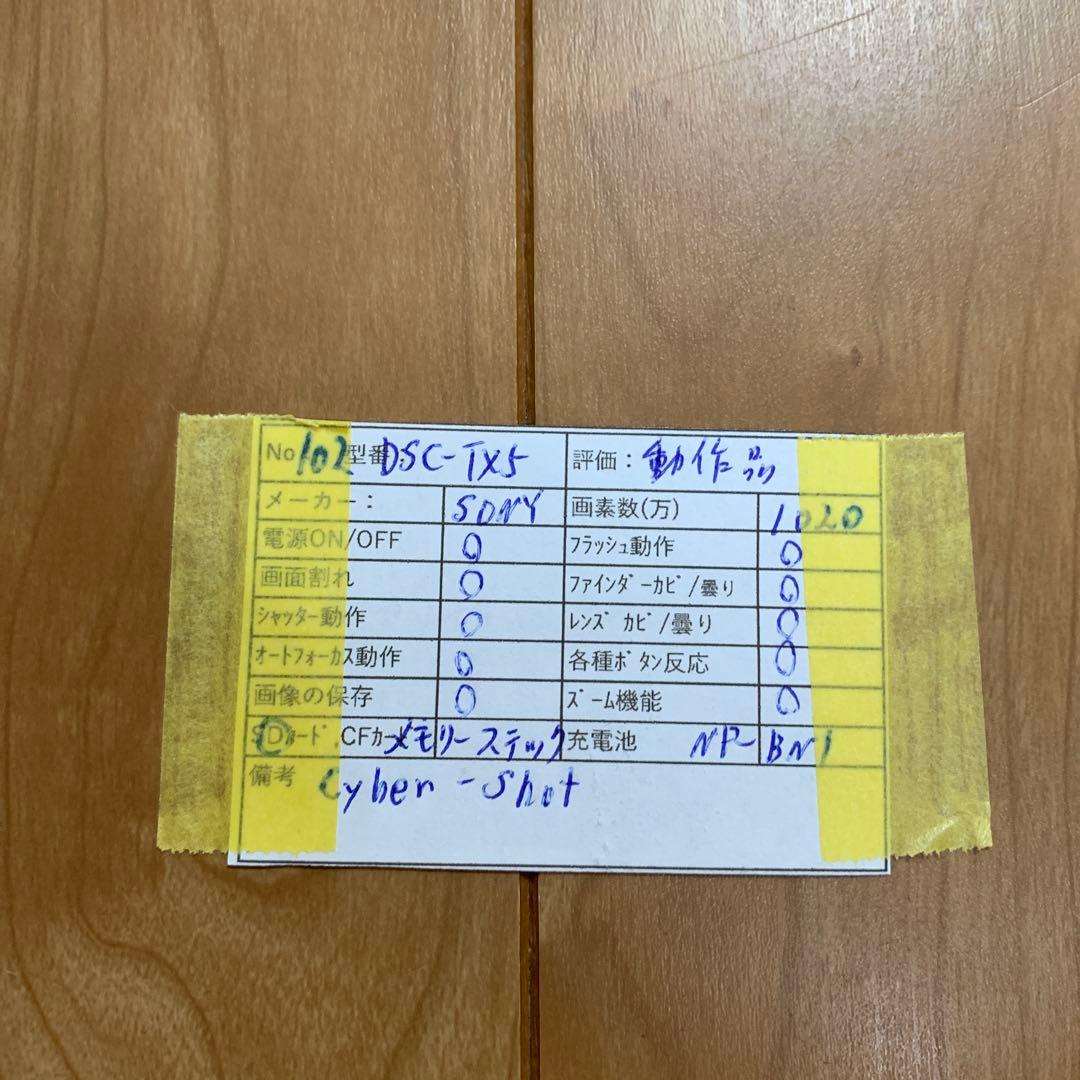 No 102 型番: DSC-TX5 評価: 動作品
メーカー: SONY 画素数(万) 1020
電源ON/OFF 〇 フラッシュ動作 〇
画面割れ 〇 ファインダーカビ/曇り 〇
シャッター動作 〇 レンズカビ/曇り 〇
オートフォーカス動作 〇 各種ボタン反応 〇
画像の保存 〇 ズーム機能 〇
SDカード.CFカード メモリースティック 充電池 NP-BN1
備考 Cyber-Shot